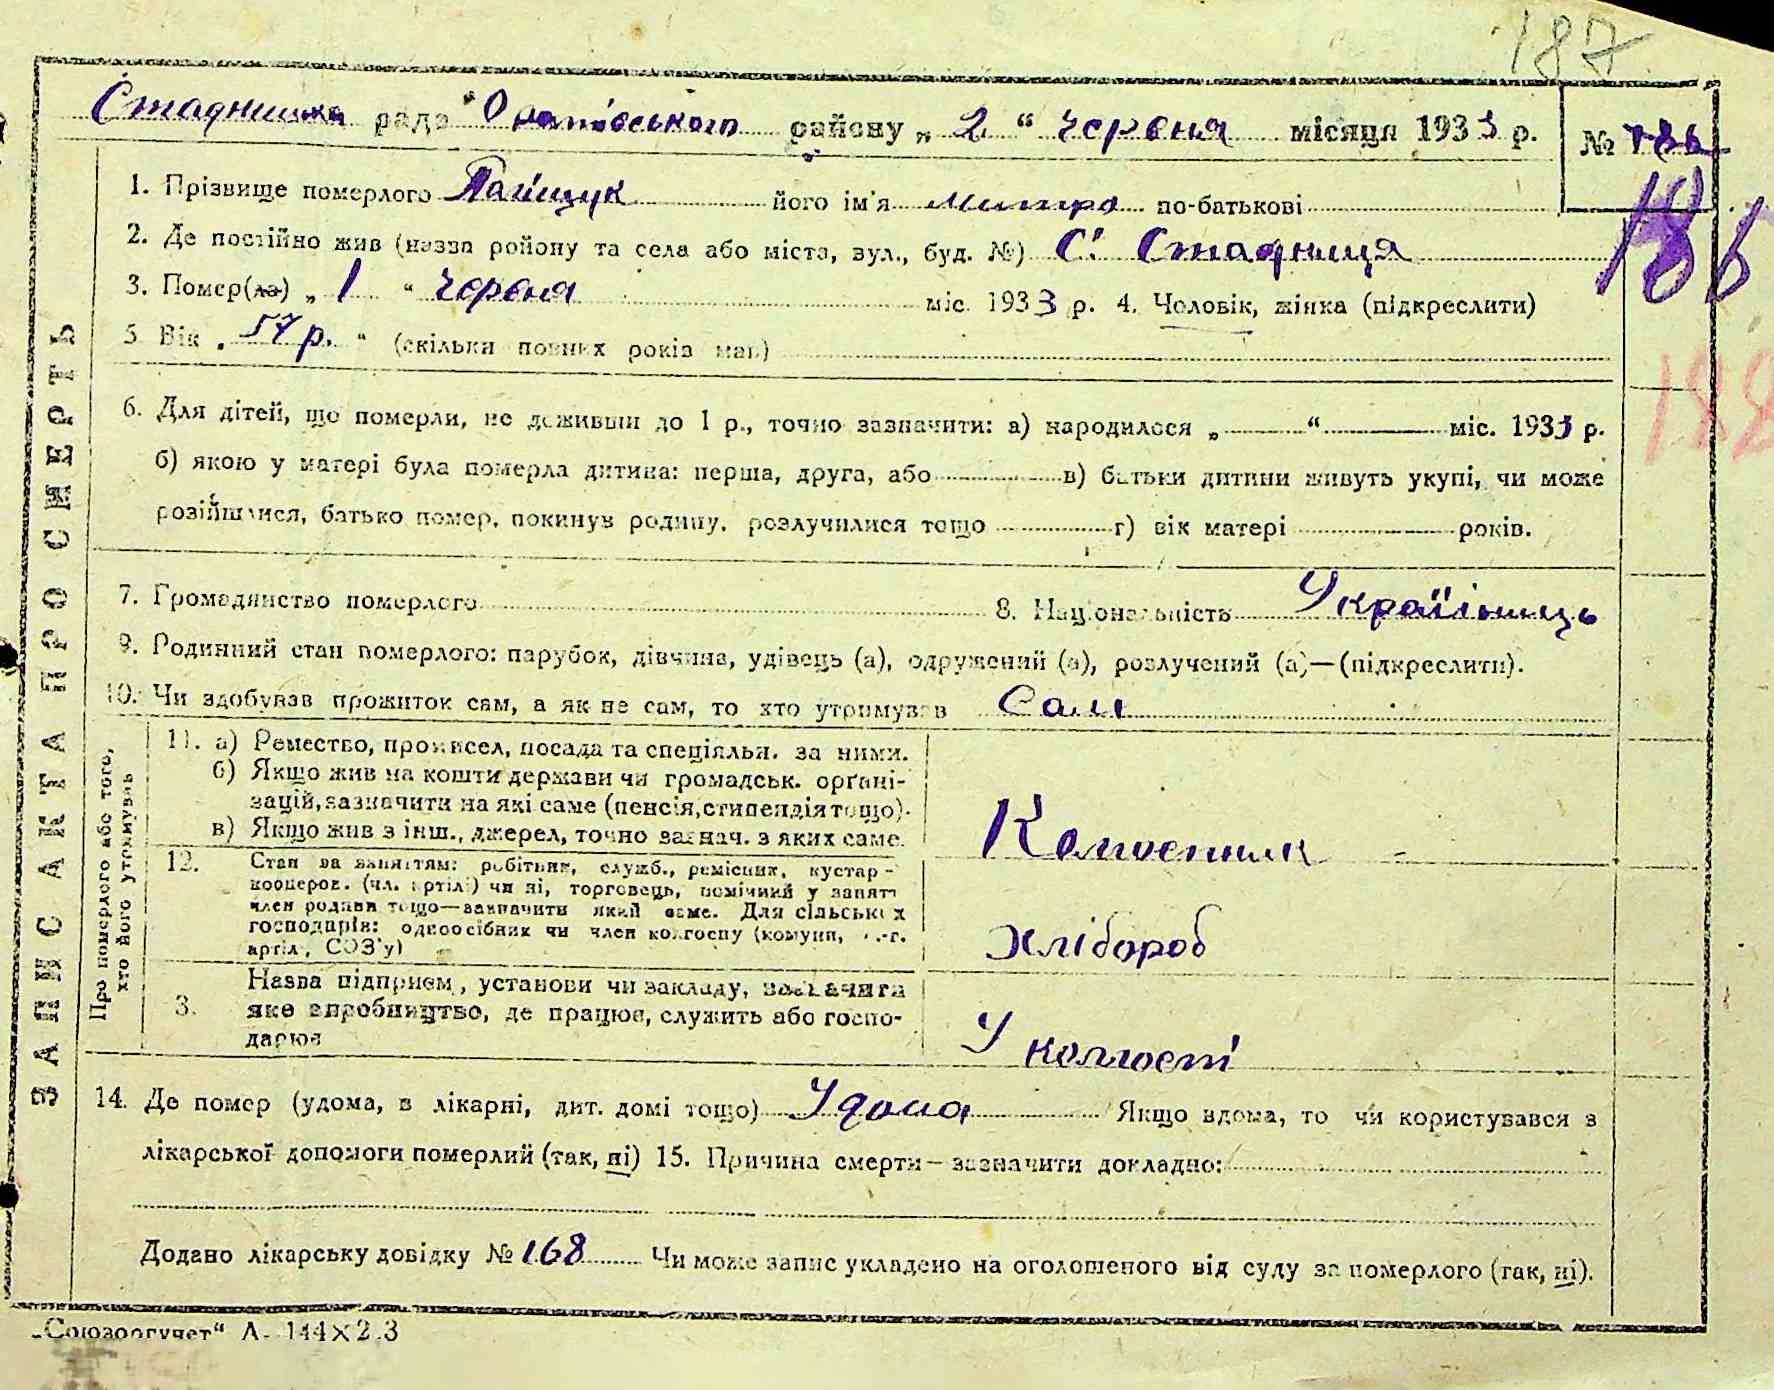 187
Стадницька рада Оратівського району „ 2 “ червня місяця 1933 р.
№ 186
186
188
1. Прізвище померлого Паїщук його ім'я митро по-батькові
2. Де постійно жив (назва району та села або міста, вул., буд. №) С. Стадниця
3. Помер(ла) „ 1 “ червня міс. 1933 р. 4. Чоловік, жінка (підкреслити)
5 Вік „ 57 р. “ (скільки повних років мав)
6. Для дітей, що померли, не доживши до 1 р., точно зазначити: а) народилося „ “ міс. 1933 р.
б) якою у матері була померла дитина: перша, друга, або в) батьки дитини живуть укупі, чи може
розійшлися, батько помер, покинув родину, розлучилися тощо г) вік матері років.
7. Громадянство померлого 8. Національність Українець
9. Родинний стан померлого: парубок, дівчина, удівець (а), одружений (а), розлучений (а)—(підкреслити).
10. Чи здобував прожиток сам, а як не сам, то хто утримував Сам
ЗАПИС АКТА ПРО СМЕРТЬ
Про померлого або того,
хто його утримував
11. а) Ремество, промисел, посада та спеціяльн. за ними.
б) Якщо жив на кошти держави чи громадськ. органі-
зацій, зазначити на які саме (пенсія, стипендія тощо).
в) Якщо жив з інш., джерел, точно зазнач. з яких саме.
Колгоспник
12. Стан за заняттям: робітник, служб., ремісник, кустар-
кооперов. (чл. артілі) чи ні, торговець, помічний у занятт
член родини тощо—зазначити який саме. Для сільських
господарів: одноосібник чи член колгоспу (комуни, с.-г.
артіл., СОЗ'у)
хлібороб
3. Назва підприєм., установи чи закладу, зазначити
яке виробництво, де працює, служить або госпо-
дарює
У колгоспі
14. Де помер (удома, в лікарні, дит. домі тощо) Удома Якщо вдома, то чи користувався з
лікарської допомоги померлий (так, ні) 15. Причина смерти – зазначити докладно:
Додано лікарську довідку № 168 Чи може запис укладено на оголошеного від суду за померлого (так, ні).
„Союзоргучет“ А- 144×2 3